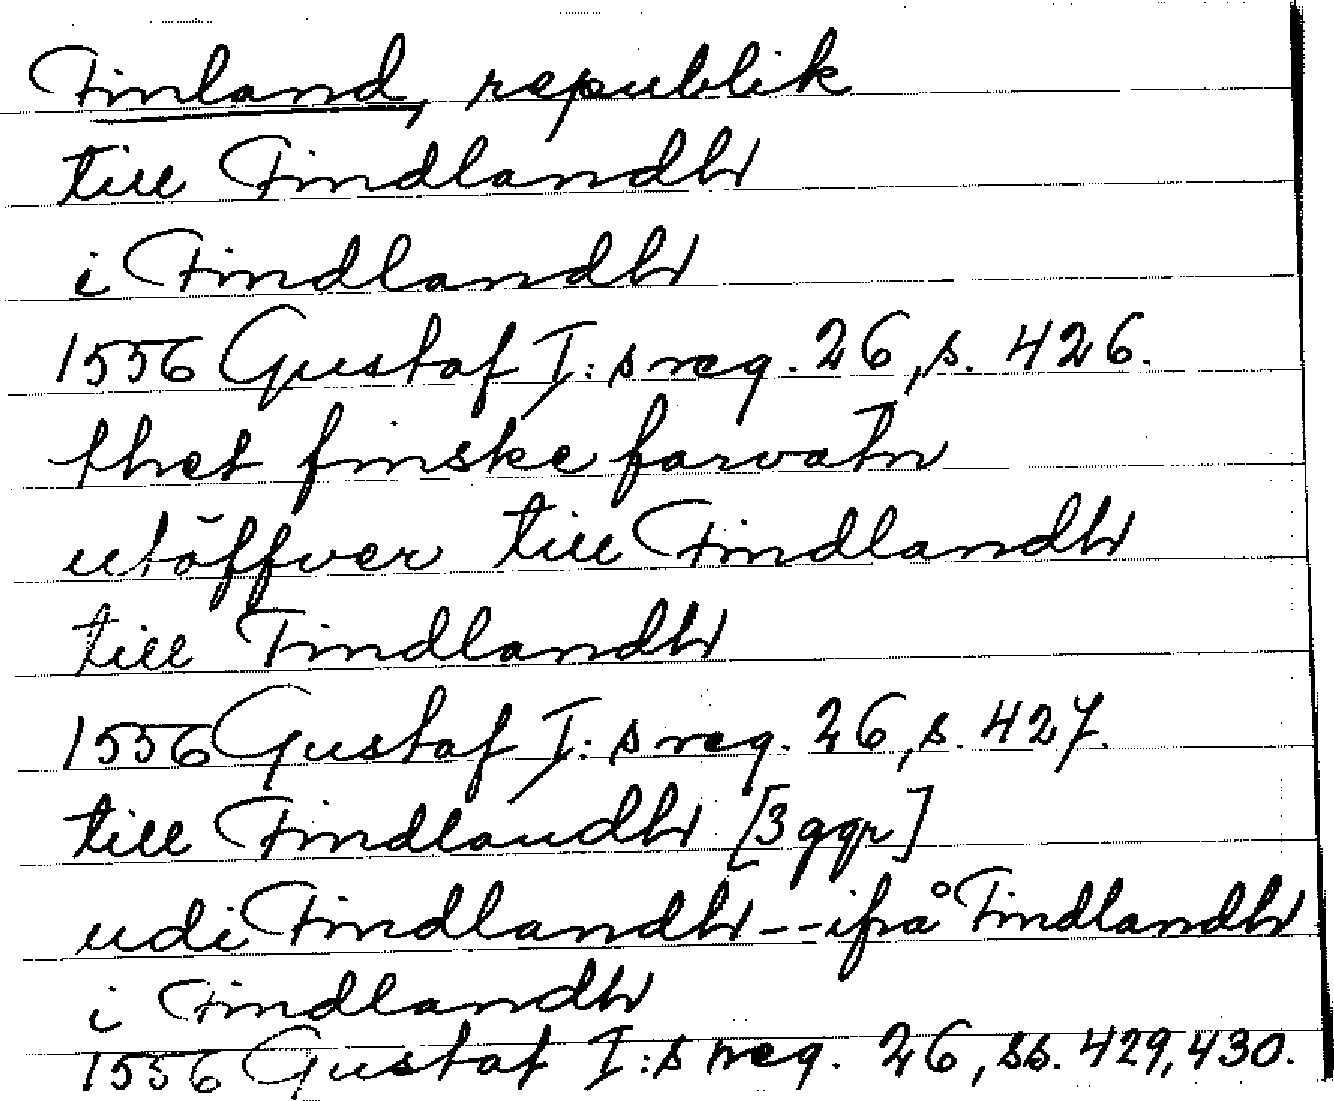 Finland, republik
till Findlandh
i Findlandh
1556 Gustaf I:s reg. 26, s. 426.
thet finske farvatn
utöffver till Findlandh
till Findlandh
1556 Gustaf I:s reg. 26, s. 427.
till Findlandh [3 ggr]
udi Findlandh -- ifrå Findlandh
i Findlandh
1556 Gustaf I:s reg. 26, ss. 429, 430.